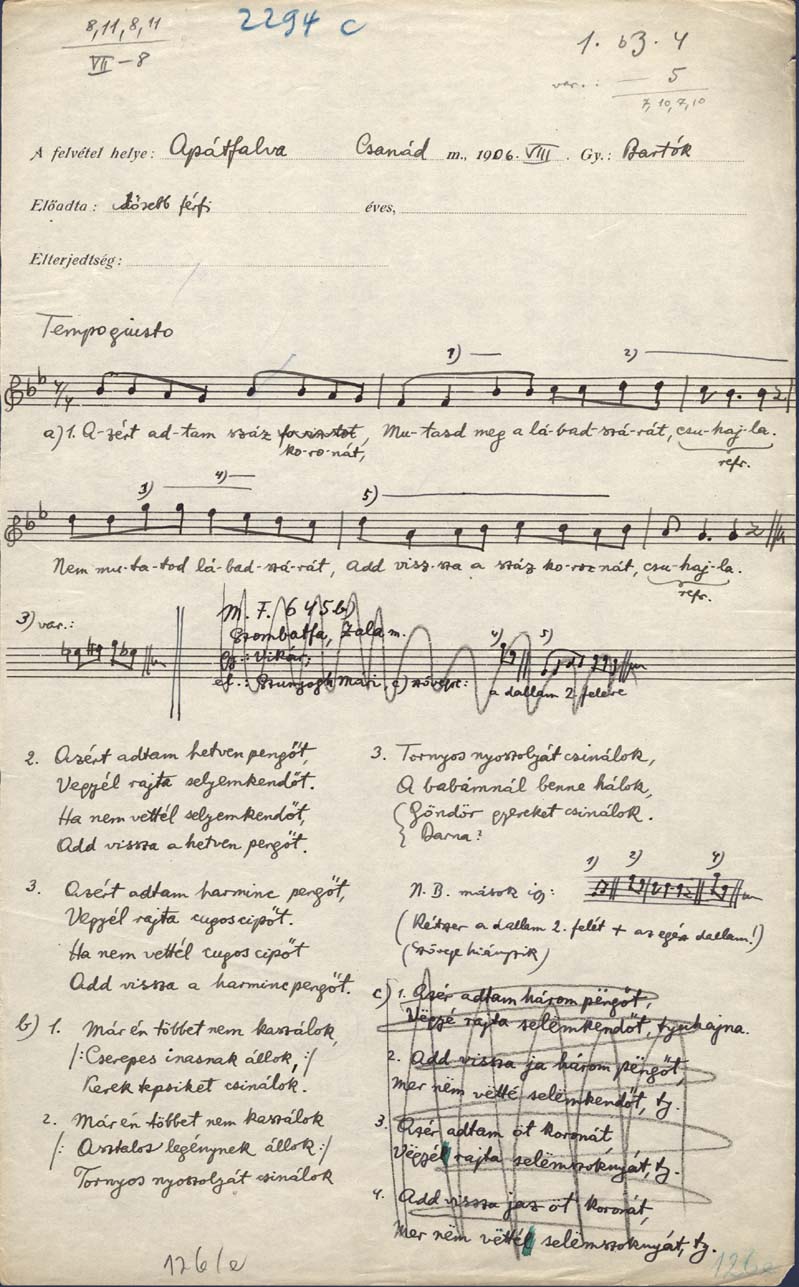 8,11,8,11
VII-8
2294 c
1. b3. 4
var.: — 5
7,10,7,10
A felvétel helye: Apátfalva Csanád m., 1906. VIII. Gy.: Bartók
Előadta: Idősebb férfi éves,
Elterjedtség:
Tempo giusto
1) 2)
4/4
a) 1. A-zért ad-tam száz forintot, Mu-tasd meg a lá-bad-szá-rát, csu-haj-la.
ko-ro-nát, refr.
3) 4) 5)
Nem mu-ta-tod lá-bad-szá-rát, Add visz-sza a száz ko-ro-nát, csu-haj-la.
refr.
3) var.: M. F. 645b)
Szombatfa, Zala m.
gy.: Vikár; 4) 5)
ef.: Szunyogh Mari, c) szöveg:
a dallam 2. felére
2. Azért adtam hetven pengőt,
Vegyél rajta selyemkendőt.
Ha nem vettél selyemkendőt,
Add vissza a hetven pengőt.
3. Azért adtam harminc pengőt,
Vegyél rajta cugos cipőt.
Ha nem vettél cugos cipőt
Add vissza a harminc pengőt.
b) 1. Már én többet nem kaszálok,
/: Cserepes inasnak állok, :/
Kerek kepsiket csinálok.
2. Már én többet nem kaszálok
/: Asztalos legénynek állok :/
Tornyos nyoszolyát csinálok
3. Tornyos nyoszolyát csinálok,
A babámnál benne hálok,
Göndör gyereket csinálok.
Barna?
1) 2) 4)
N. B. mások így:
(Kétszer a dallam 2. felét + az egész dallam!)
(Szövege hiányzik)
c) 1. Azér adtam három pëngőt,
Vëgyé rajta selëmkendőt, tyuhajna.
2. Add vissza ja három pëngőt,
Mer nëm vëtté selëmkendőt, ty.
3. Azér adtam öt koronát
Vëgyél rajta selëmszoknyát, ty.
4. Add vissza jaz öt koronát,
Mer nëm vëttél selëmszoknyát, ty.
126/e
126e